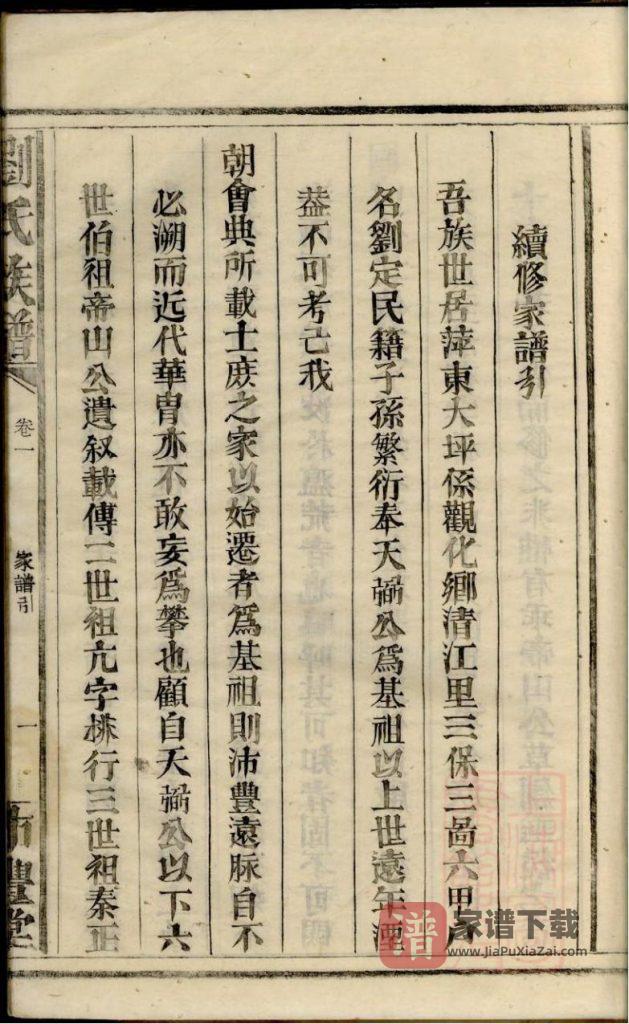 續修家譜引
吾族世居萍東大坪係觀化鄉清江里三保三啚六甲
名劉定民籍子孫繁衍奉天弼公爲基祖以上世遠年湮
葢不可考已我
朝會典所載士庶之家以始遷者爲基祖則沛豐遠脉自不
必溯而近代華胄亦不敢妄爲攀也顧自天弼公以下六
世伯祖帝山公遺叙載傳二世祖亢字排行三世祖秦正
劉氏族譜
卷一
家譜引
一
豐堂
譜
家谱下载
www.JiaPuXiaZai.com